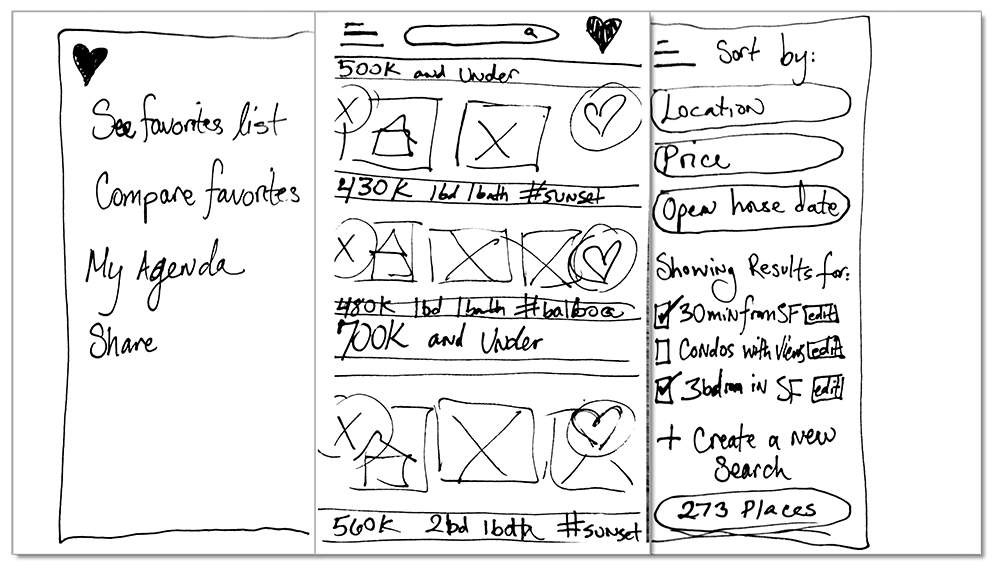 See favorites list
Compare favorites
My Agenda
Share
500K and Under
X
X
430K 1bd 1bath #sunset
X
480K 1bd 1bath #balboa
700K and Under
X
560K 2bd 1bath #sunset
Sort by:
Location
Price
Open house date
Showing Results for:
30min from SF edit
Condos with Views edit
3bdrm in SF edit
+ Create a new
Search
273 Places